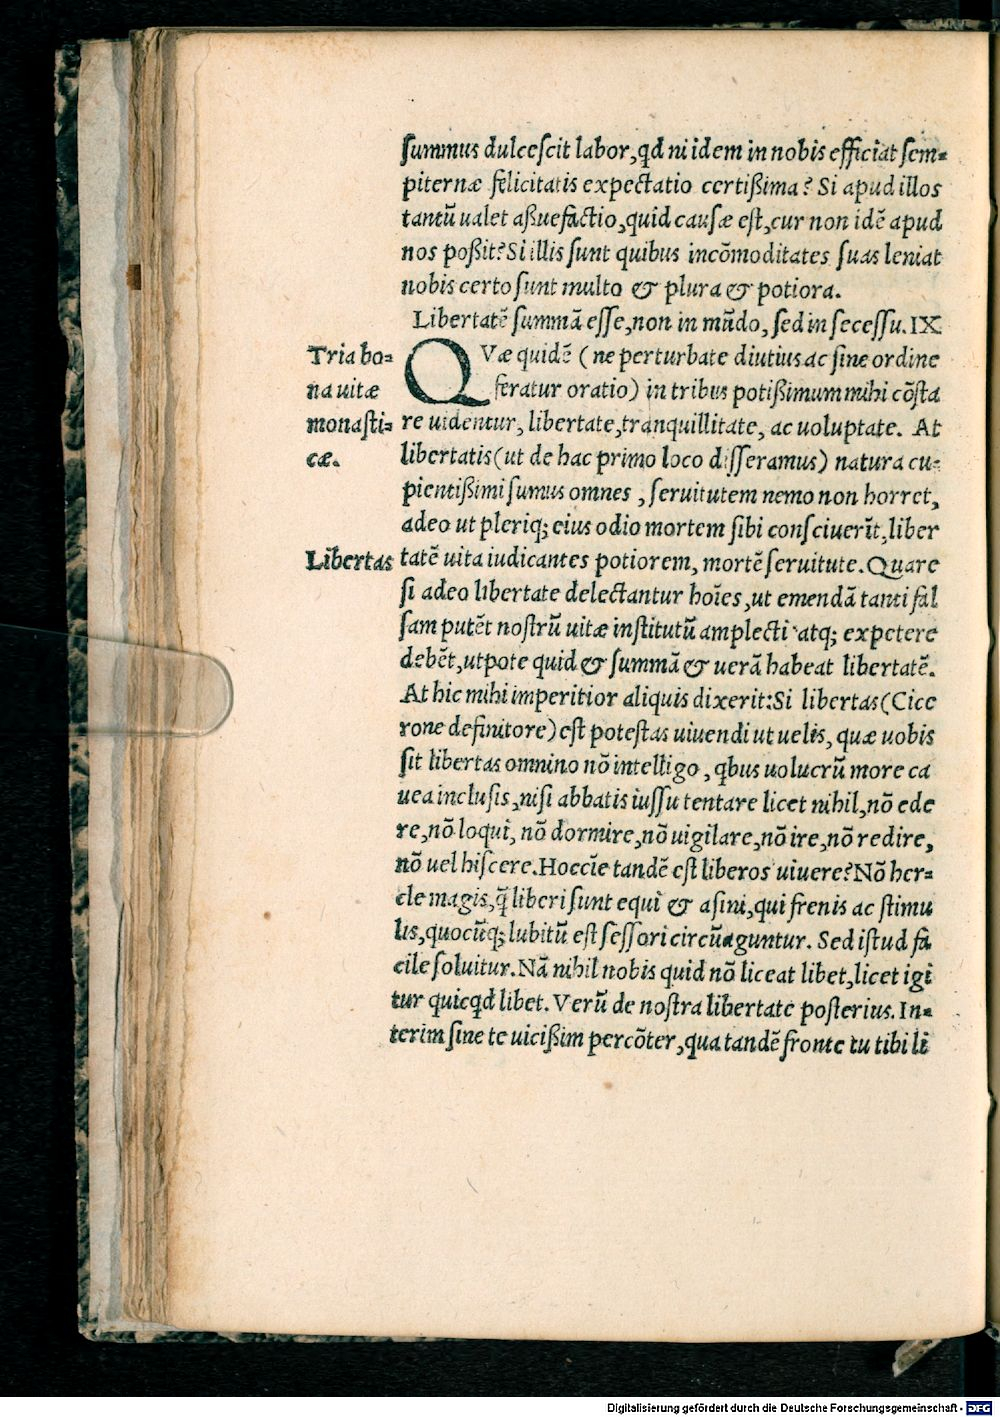 summus dulcescit labor, qd ni idem in nobis efficiat sem-
piternæ felicitatis expectatio certißima? Si apud illos
tantũ ualet aßuefactio, quid causæ est, cur non idẽ apud
nos poßit? Si illis sunt quibus incõmoditates suas leniat
nobis certo sunt multo & plura & potiora.
Libertatẽ summã esse, non in mũdo, sed in secessu. IX
Tria bo-
na uitæ
monasti-
cæ.
QVæ quidẽ ( ne perturbate diutius ac sine ordine
feratur oratio) in tribus potißimum mihi cõsta
re uidentur, libertate, tranquillitate, ac uoluptate. At
libertatis (ut de hac primo loco disseramus) natura cu-
pientißimi sumus omnes , seruitutem nemo non horret,
adeo ut pleriq; eius odio mortem sibi consciuerĩt, liber
Libertas
tatẽ uita iudicantes potiorem, mortẽ seruitute. Quare
si adeo libertate delectantur hoĩes, ut emendã tanti fal
sam putẽt nostrũ uitæ institutũ amplecti atq; expetere
debẽt, utpote quid & summã & uerã habeat libertatẽ.
At hic mihi imperitior aliquis dixerit: Si libertas (Cice
rone definitore) est potestas uiuendi ut uelis, quæ uobis
sit libertas omnino nõ intelligo , qbus uolucrũ more ca
uea inclusis, nisi abbatis iussu tentare licet nihil, nõ ede
re, nõ loqui, nõ dormire, nõ uigilare, nõ ire, nõ redire,
nõ uel hiscere. Hoccĩe tandẽ est liberos uiuere? Nõ her-
cle magis, q̃ liberi sunt equi & asini, qui frenis ac stimu
lis, quocũq; lubitũ est sessori circũaguntur. Sed istud fa
cile soluitur. Nã nihil nobis quid nõ liceat libet, licet igi
tur quicqd libet. Verũ de nostra libertate posterius. In-
terim sine te uicißim percõter, qua tandẽ fronte tu tibi li
Digitalisierung gefördert durch die Deutsche Forschungsgemeinschaft - DFG